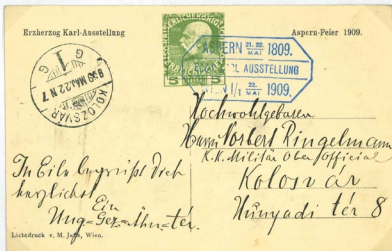 Erzherzog Karl-Ausstellung
Aspern-Feier 1909.
5 5
ASPERN 21. 22. MAI 1809.
AUSSTELLUNG
21. 22. MAI 1909.
KOLOZSVÁR
1
G G
Hochwohlgeboren
Herrn Norbert Ringelmann
K.K. Militär Ober Official
Kolosvár
Hunyadi tér 8
In Eile begrüsst Dich
herzlichst
Ein
Lichtdruck v. M. Jaffé, Wien.